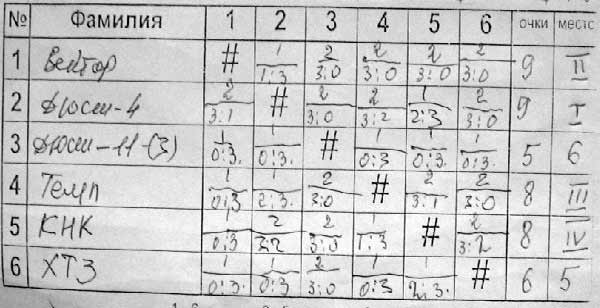 № Фамилия 1 2 3 4 5 6 очки место
1 Вектор # 1 1:3 2 3:0 2 3:0 2 3:0 2 3:0 9 II
2 Дюсш-4 2 3:1 # 2 3:0 2 3:2 1 2:3 2 3:0 9 I
3 Дюсш-11-(3) 1 0:3. 1 0:3. # 1 0:3 1 0:3. 1 0:3. 5 6
4 Темп 1 0:3 1 2:3. 2 3:0 # 2 3:1 2 3:0 8 III
5 КНК 1 0:3 2 3:2 2 3:0 1 1:3 # 2 3:2 8 IV
6 ХТЗ 1 0:3. 1 0:3 2 3:0 1 0:3 1 2:3. # 6 5